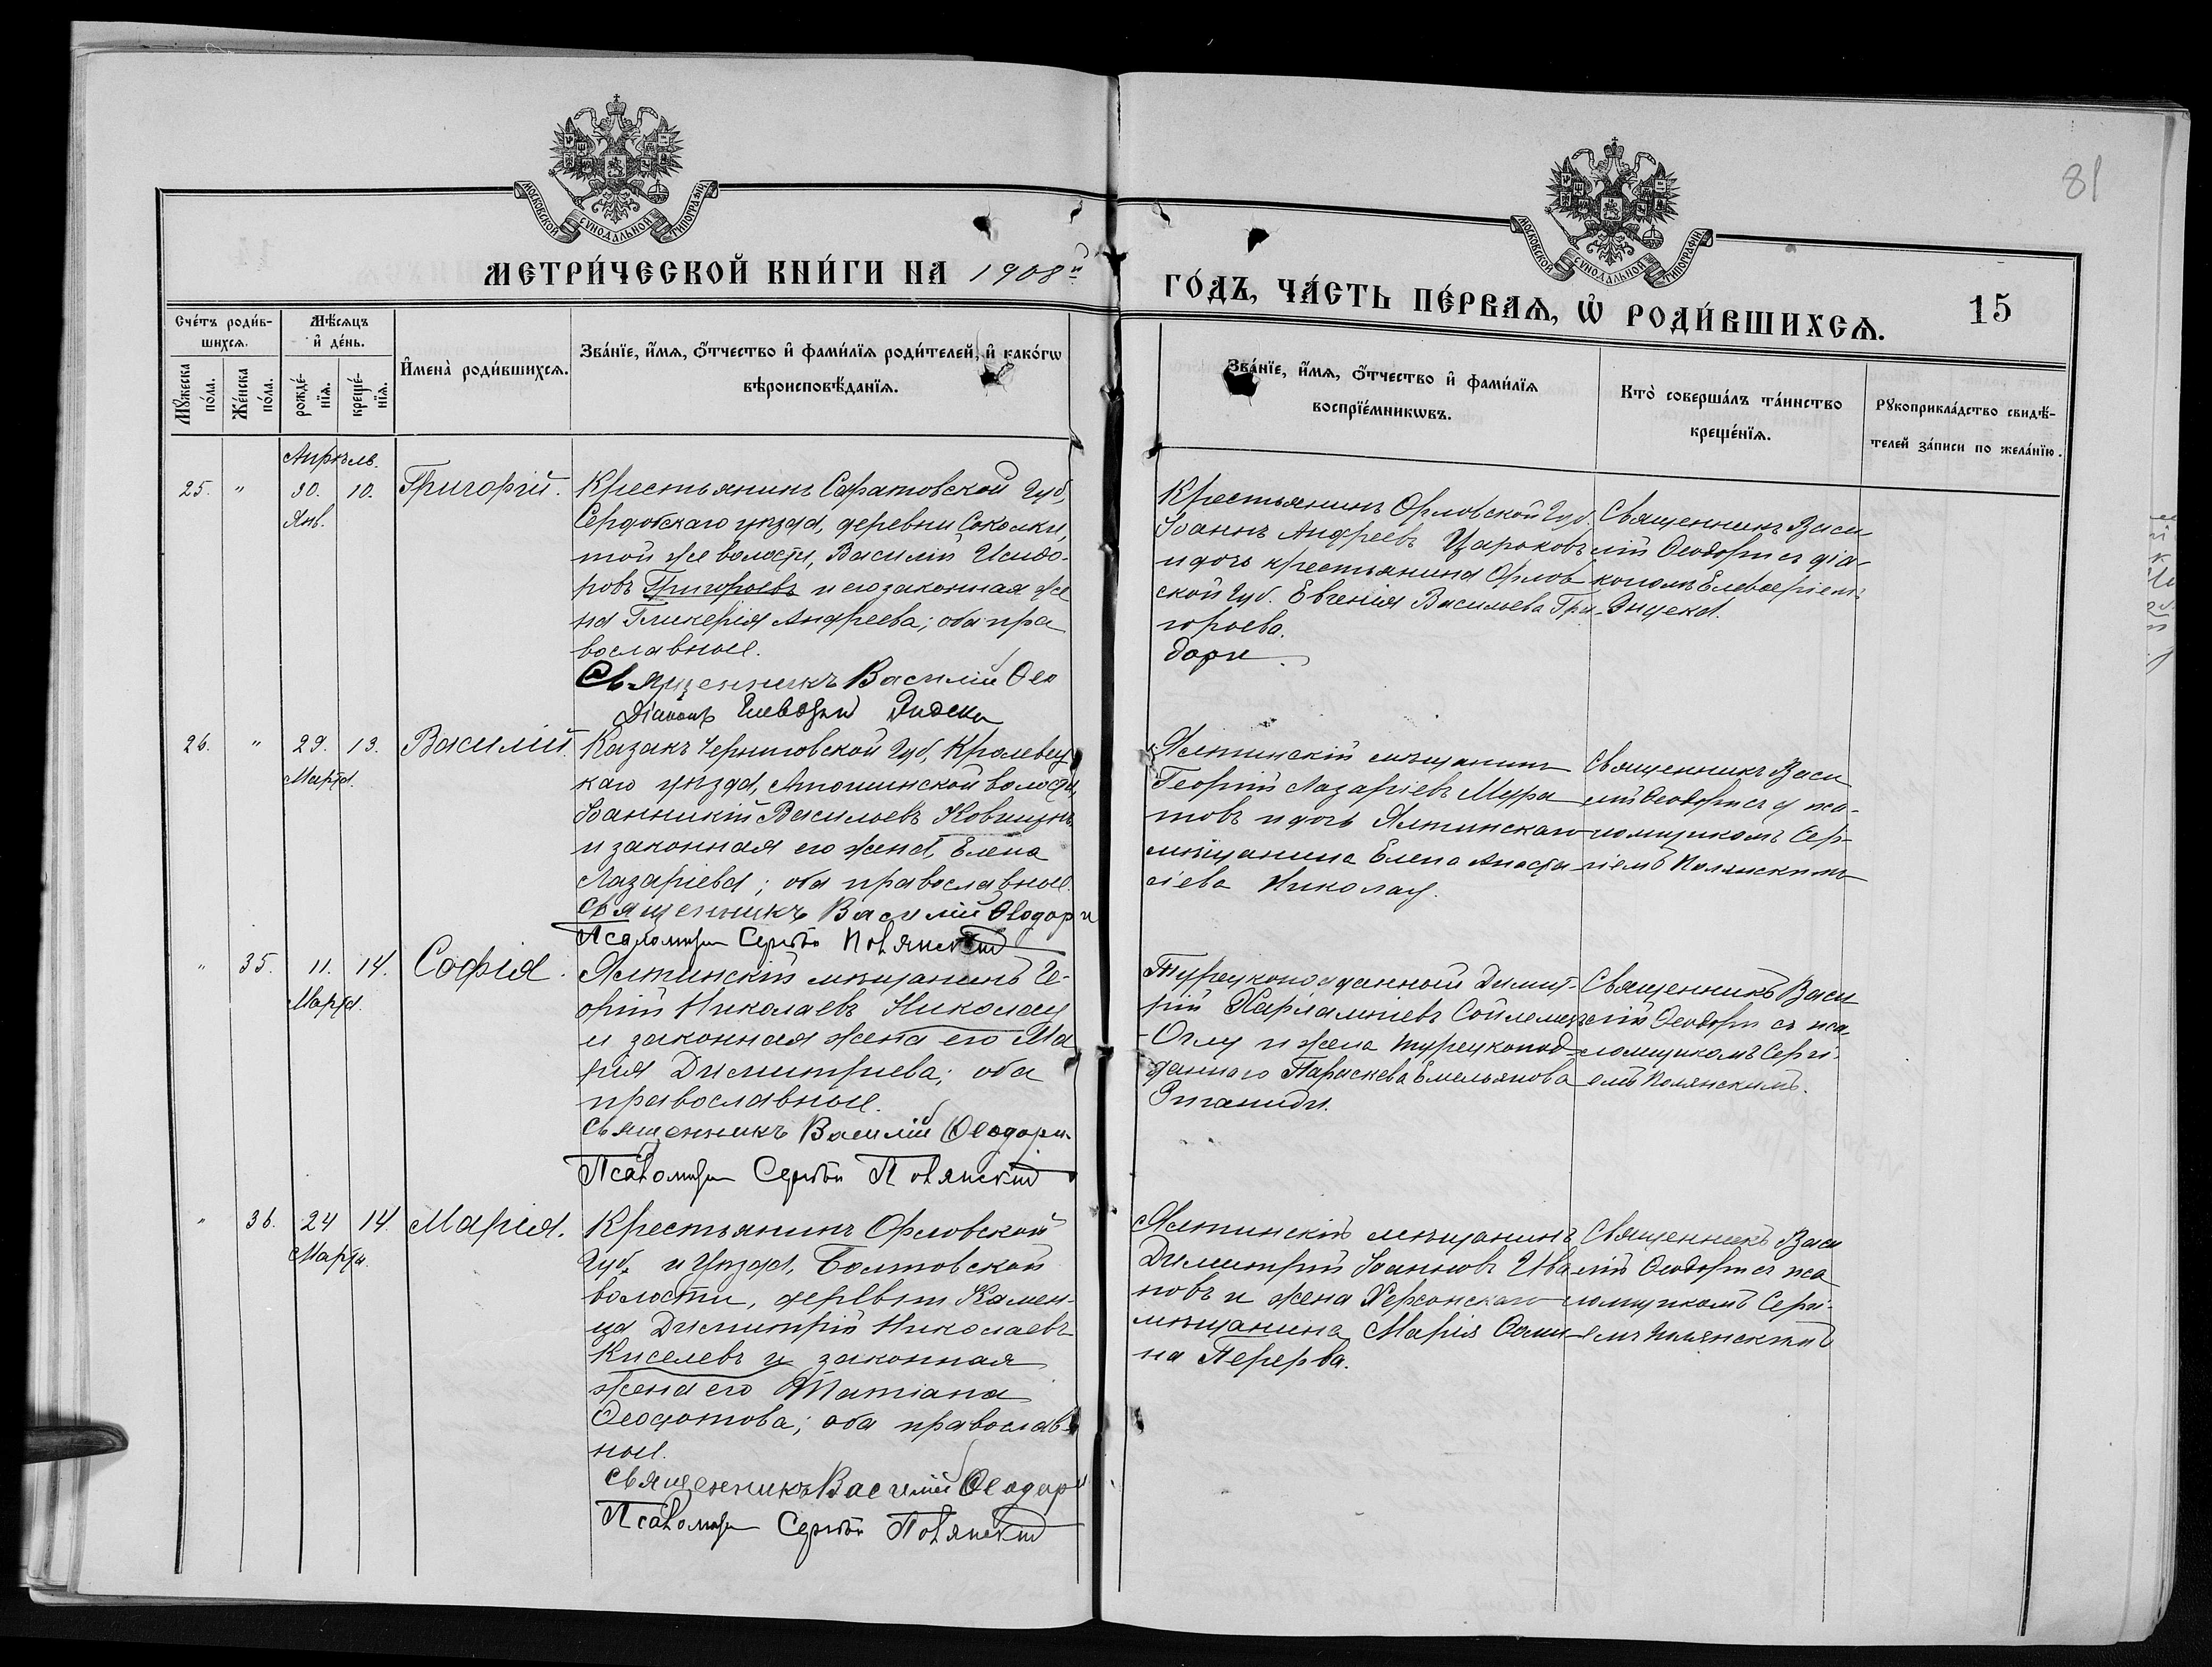 81
МОСКОВСКОЙ СѴНОДАЛЬНОЙ ТИПОГРАФІИ
МОСКОВСКОЙ СѴНОДАЛЬНОЙ ТИПОГРАФІИ
МЕТРИ́ЧЕСКОЙ КНИ́ГИ НА 1908й
ГО́ДЪ, ЧА́СТЬ ПЕ́РВАѦ, Ѡ҆ РОДИ́ВШИХСѦ.
15
Сче́тъ роди́в-
шихсѧ.
Мꙋ́жеска по́ла.
Же́нска по́ла.
Мѣ́сѧцъ и҆ де́нь.
рожде́-нїѧ.
креще́-нїѧ.
И҆мена̀ роди́вшихсѧ.
Зва́нїе, и҆́мѧ, ѻ҆́тчество и҆ фами́лїѧ роди́телей, и҆ како́гѡ
вѣроисповѣ́данїѧ.
Зва́нїе, и҆́мѧ, ѻ҆́тчество и҆ фами́лїѧ
воспрїе́мникѡвъ.
Кто̀ соверша́лъ та́инство
креще́нїѧ.
Рꙋкоприкла́дство свидѣ́-
телей за́писи по жела́нїю.
Апрѣль.
25. " 30. 10. Григорій.
Янв.
Крестьянинъ Саратовской Губ,
Сердобскаго уѣзда, деревни Соколки,
той же волости, Василій Исидо-
ровъ Григорьевъ и его законная же
на Гликерія Андреева; оба пра
вославные.
Священникъ Василій Ѳео
Діаконъ Елевѳерій Эндека
Крестьянинъ Орловской Губ.
Іоаннъ Андреевъ Царьковъ
и дочь крестьянина Орлов
ской Губ. Евгенія Васильева Гри-
горьева.
дори.
Священникъ Васи
лій Ѳеодори съ діа-
кономъ Елевѳеріемъ
Эндека.
26. " 29. 13. Василій.
Марта.
Казакъ Черниговской Губ, Кролевец
каго уѣзда, волости,
Іоанникій Васильевъ
и законная его жена Елена
Лазаріева; оба православные.
Священникъ Василій Ѳеодори
Псаломщикъ Сергѣй Полянскій
Ялтинскій мѣщанинъ
Георгій Лазаріевъ Мура
товъ и дочь Ялтинскаго
мѣщанина Елена Анаста
сіева Николау.
Священникъ Васи
лій Ѳеодори съ пса-
ломщикомъ Сер-
гіемъ Полянскимъ
" 35. 11. 14. Софія.
Марта.
Ялтинскій мѣщанинъ Ге-
оргій Николаевъ Николау
и законная жена его Ма
рія Димитріева; оба
православные.
Священникъ Василій Ѳеодори.
Псаломщикъ Сергѣй Полянскій
Турецкоподданный Димит-
рій Харлампіевъ Сойлемез
-Оглу и жена турецкопод-
даннаго Параскева Емельянова
Священникъ Васи
лій Ѳеодори съ пса
ломщикомъ Сергі-
емъ Полянскимъ.
" 36. 24 14. Марія.
Марта.
Крестьянинъ Орловской
Губ. и Уѣзда, волости, деревни Камен-
ца Димитрій Николаевъ
Киселевъ и законная
жена его Татіана
Ѳеодотова; оба православ-
ные.
Священникъ Василій Ѳеодори
Псаломщикъ Сергѣй Полянскій
Ялтинскій мѣщанинъ
Димитрій Іоанновъ Ива
новъ и жена Херсонскаго
мѣщанина Марія Ѳоми-
на Перерва.
Священникъ Васи
лій Ѳеодори съ пса
ломщикомъ Сергі-
емъ Полянскимъ